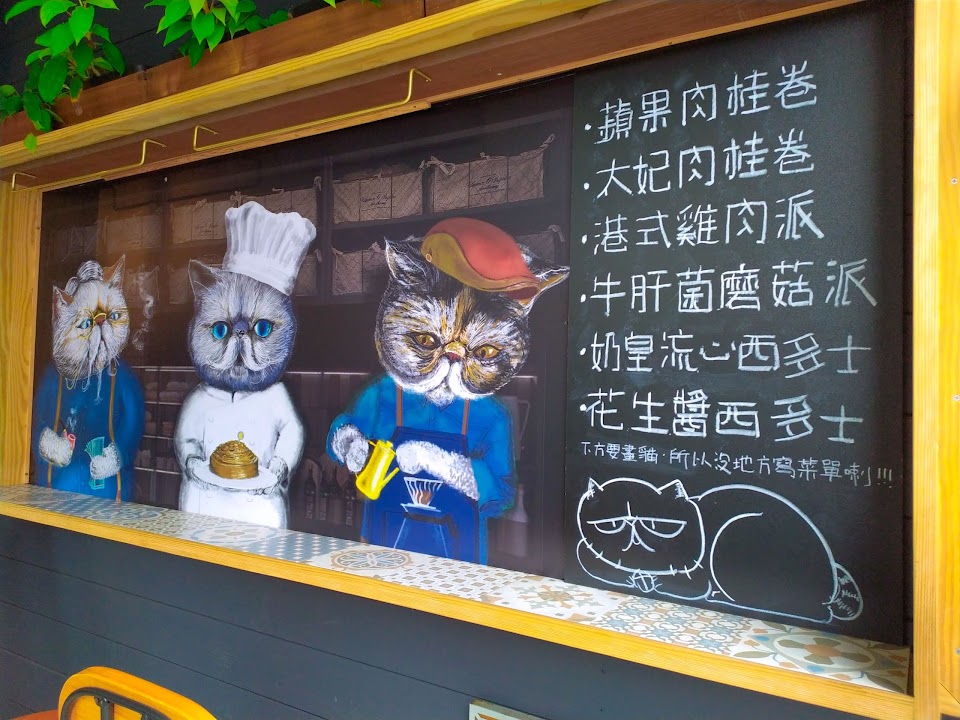 ·蘋果肉桂卷
·太妃肉桂卷
·港式雞肉派
·牛肝菌磨菇派
·奶皇流心西多士
·花生醬西多士
下方要畫貓·所以沒地方寫菜單喇!!!